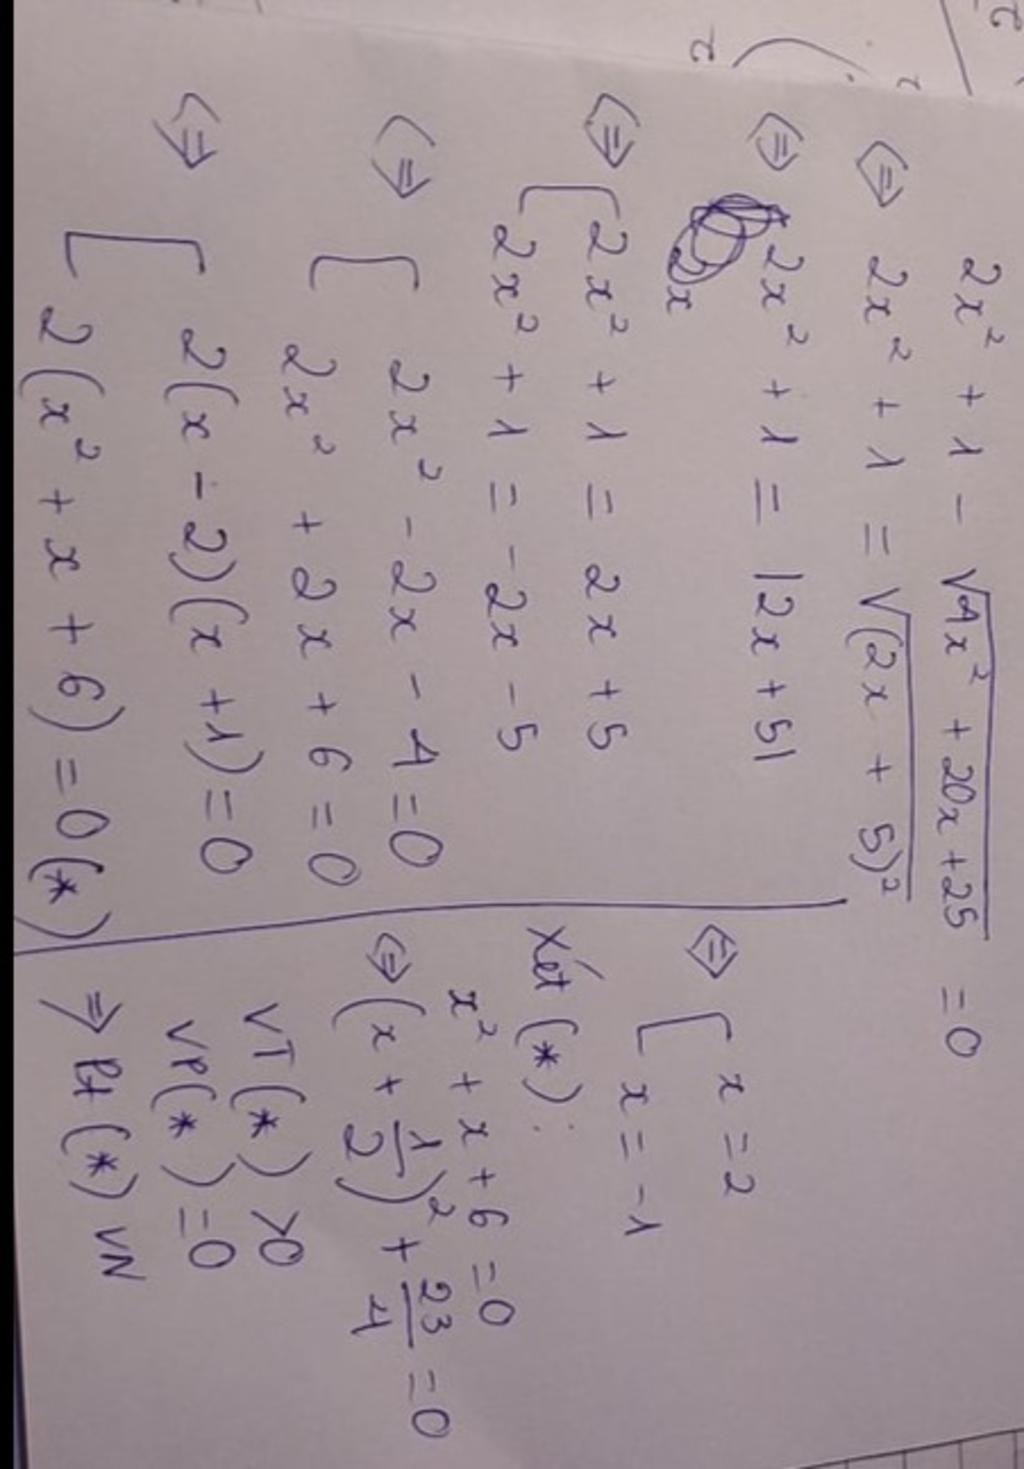 2x² + 1 - √(4x² + 20x + 25) = 0
⇔ 2x² + 1 = √((2x + 5)²)
⇔ 2x² + 1 = |2x + 5|
2x
⇔ [ 2x² + 1 = 2x + 5
2x² + 1 = -2x - 5
⇔ [ 2x² - 2x - 4 = 0
2x² + 2x + 6 = 0
⇔ [ 2(x - 2)(x + 1) = 0
2(x² + x + 6) = 0 (*)
⇔ [ x = 2
x = -1
Xét (*):
x² + x + 6 = 0
⇔ (x + 1/2)² + 23/4 = 0
VT(*) > 0
VP(*) = 0
⇒ Pt (*) VN